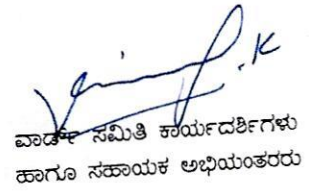 .K
ವಾರ್ಡ್ ಸಮಿತಿ ಕಾರ್ಯದರ್ಶಿಗಳು
ಹಾಗೂ ಸಹಾಯಕ ಅಭಿಯಂತರರು